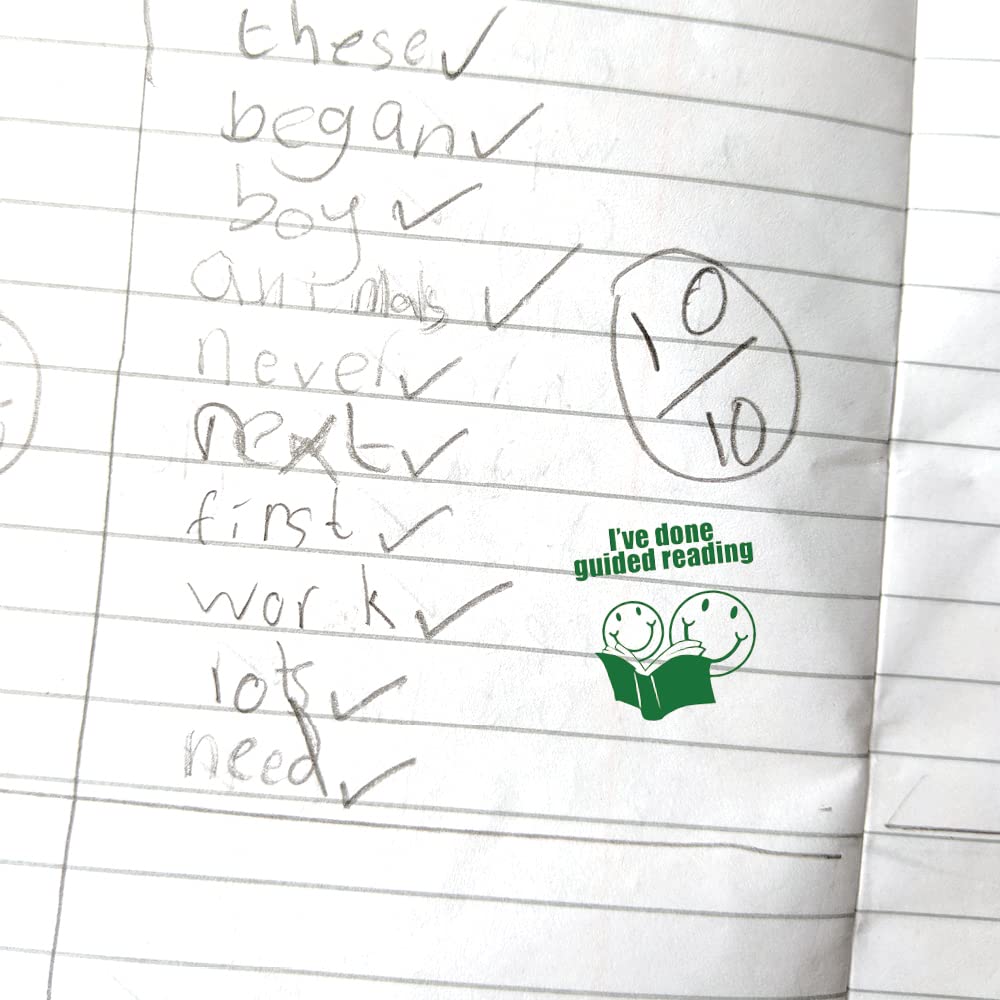 these✓
began✓
boy ✓
animals ✓
never✓
next✓
first ✓
work ✓
lots✓
need✓
10/10
I've done
guided reading